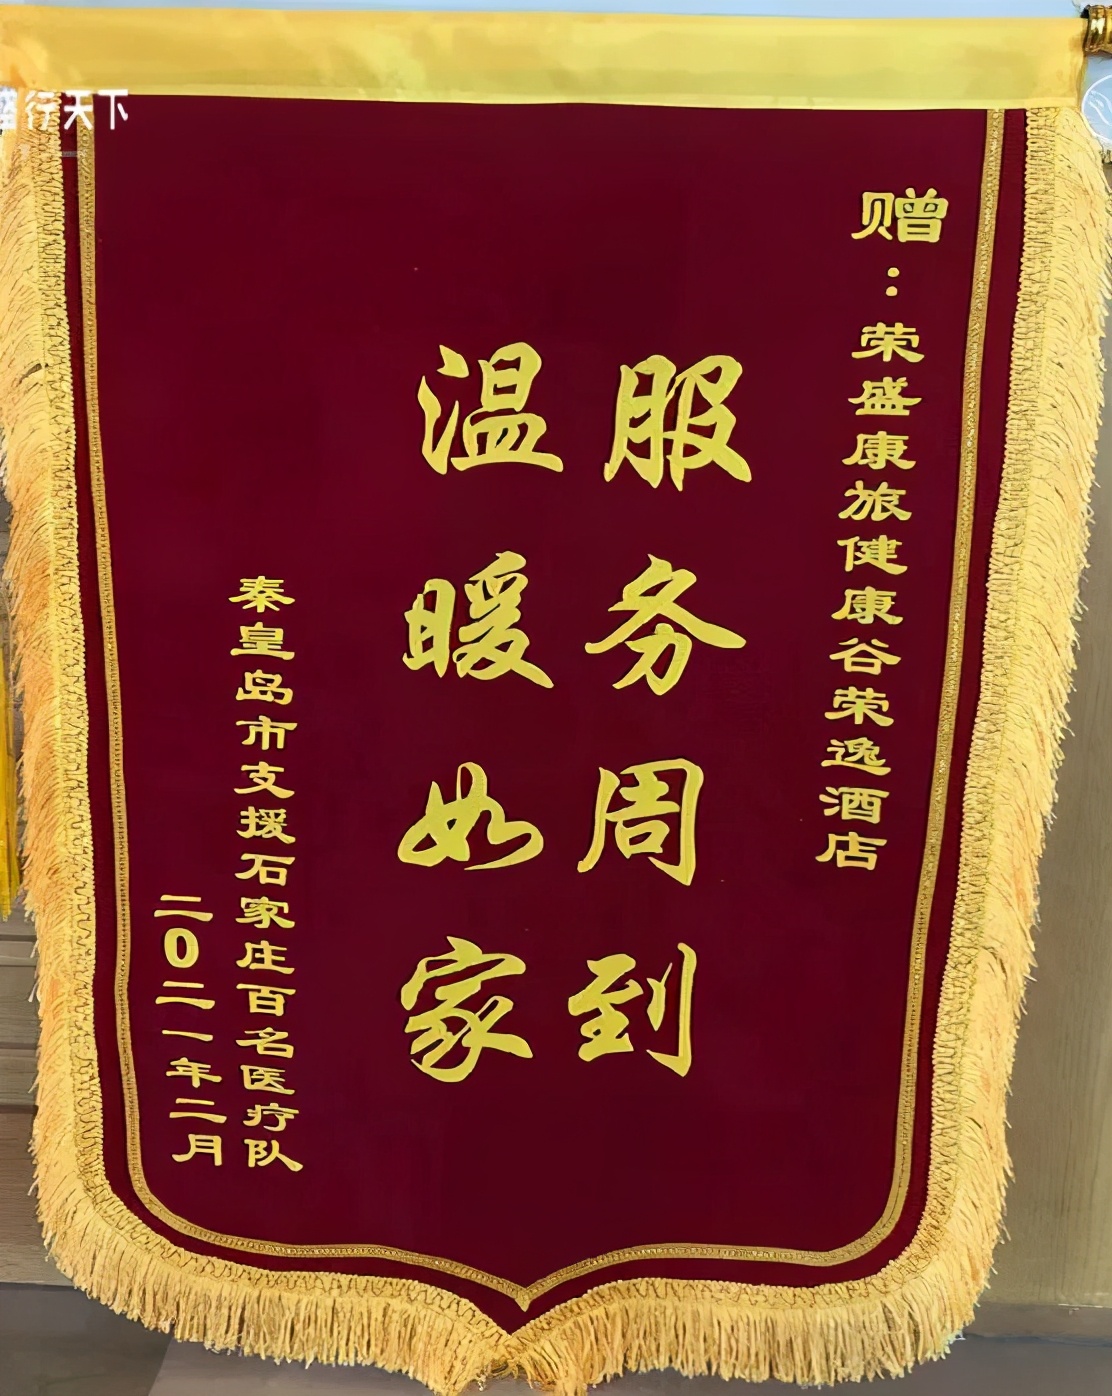 赠：荣盛康旅健康谷荣逸酒店
服务周到
温暖如家
秦皇岛市支援石家庄百名医疗队
二0二一年二月
行天下